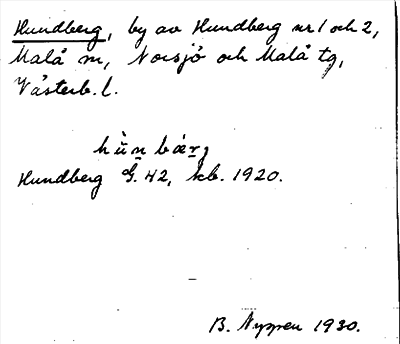 Hundberg, by av Hundberg nr 1 och 2,
Malå sn, Norsjö och Malå tg,
Västerb. l.
Hundberg G. 42, kb. 1920.
B. Nyppen 1930.